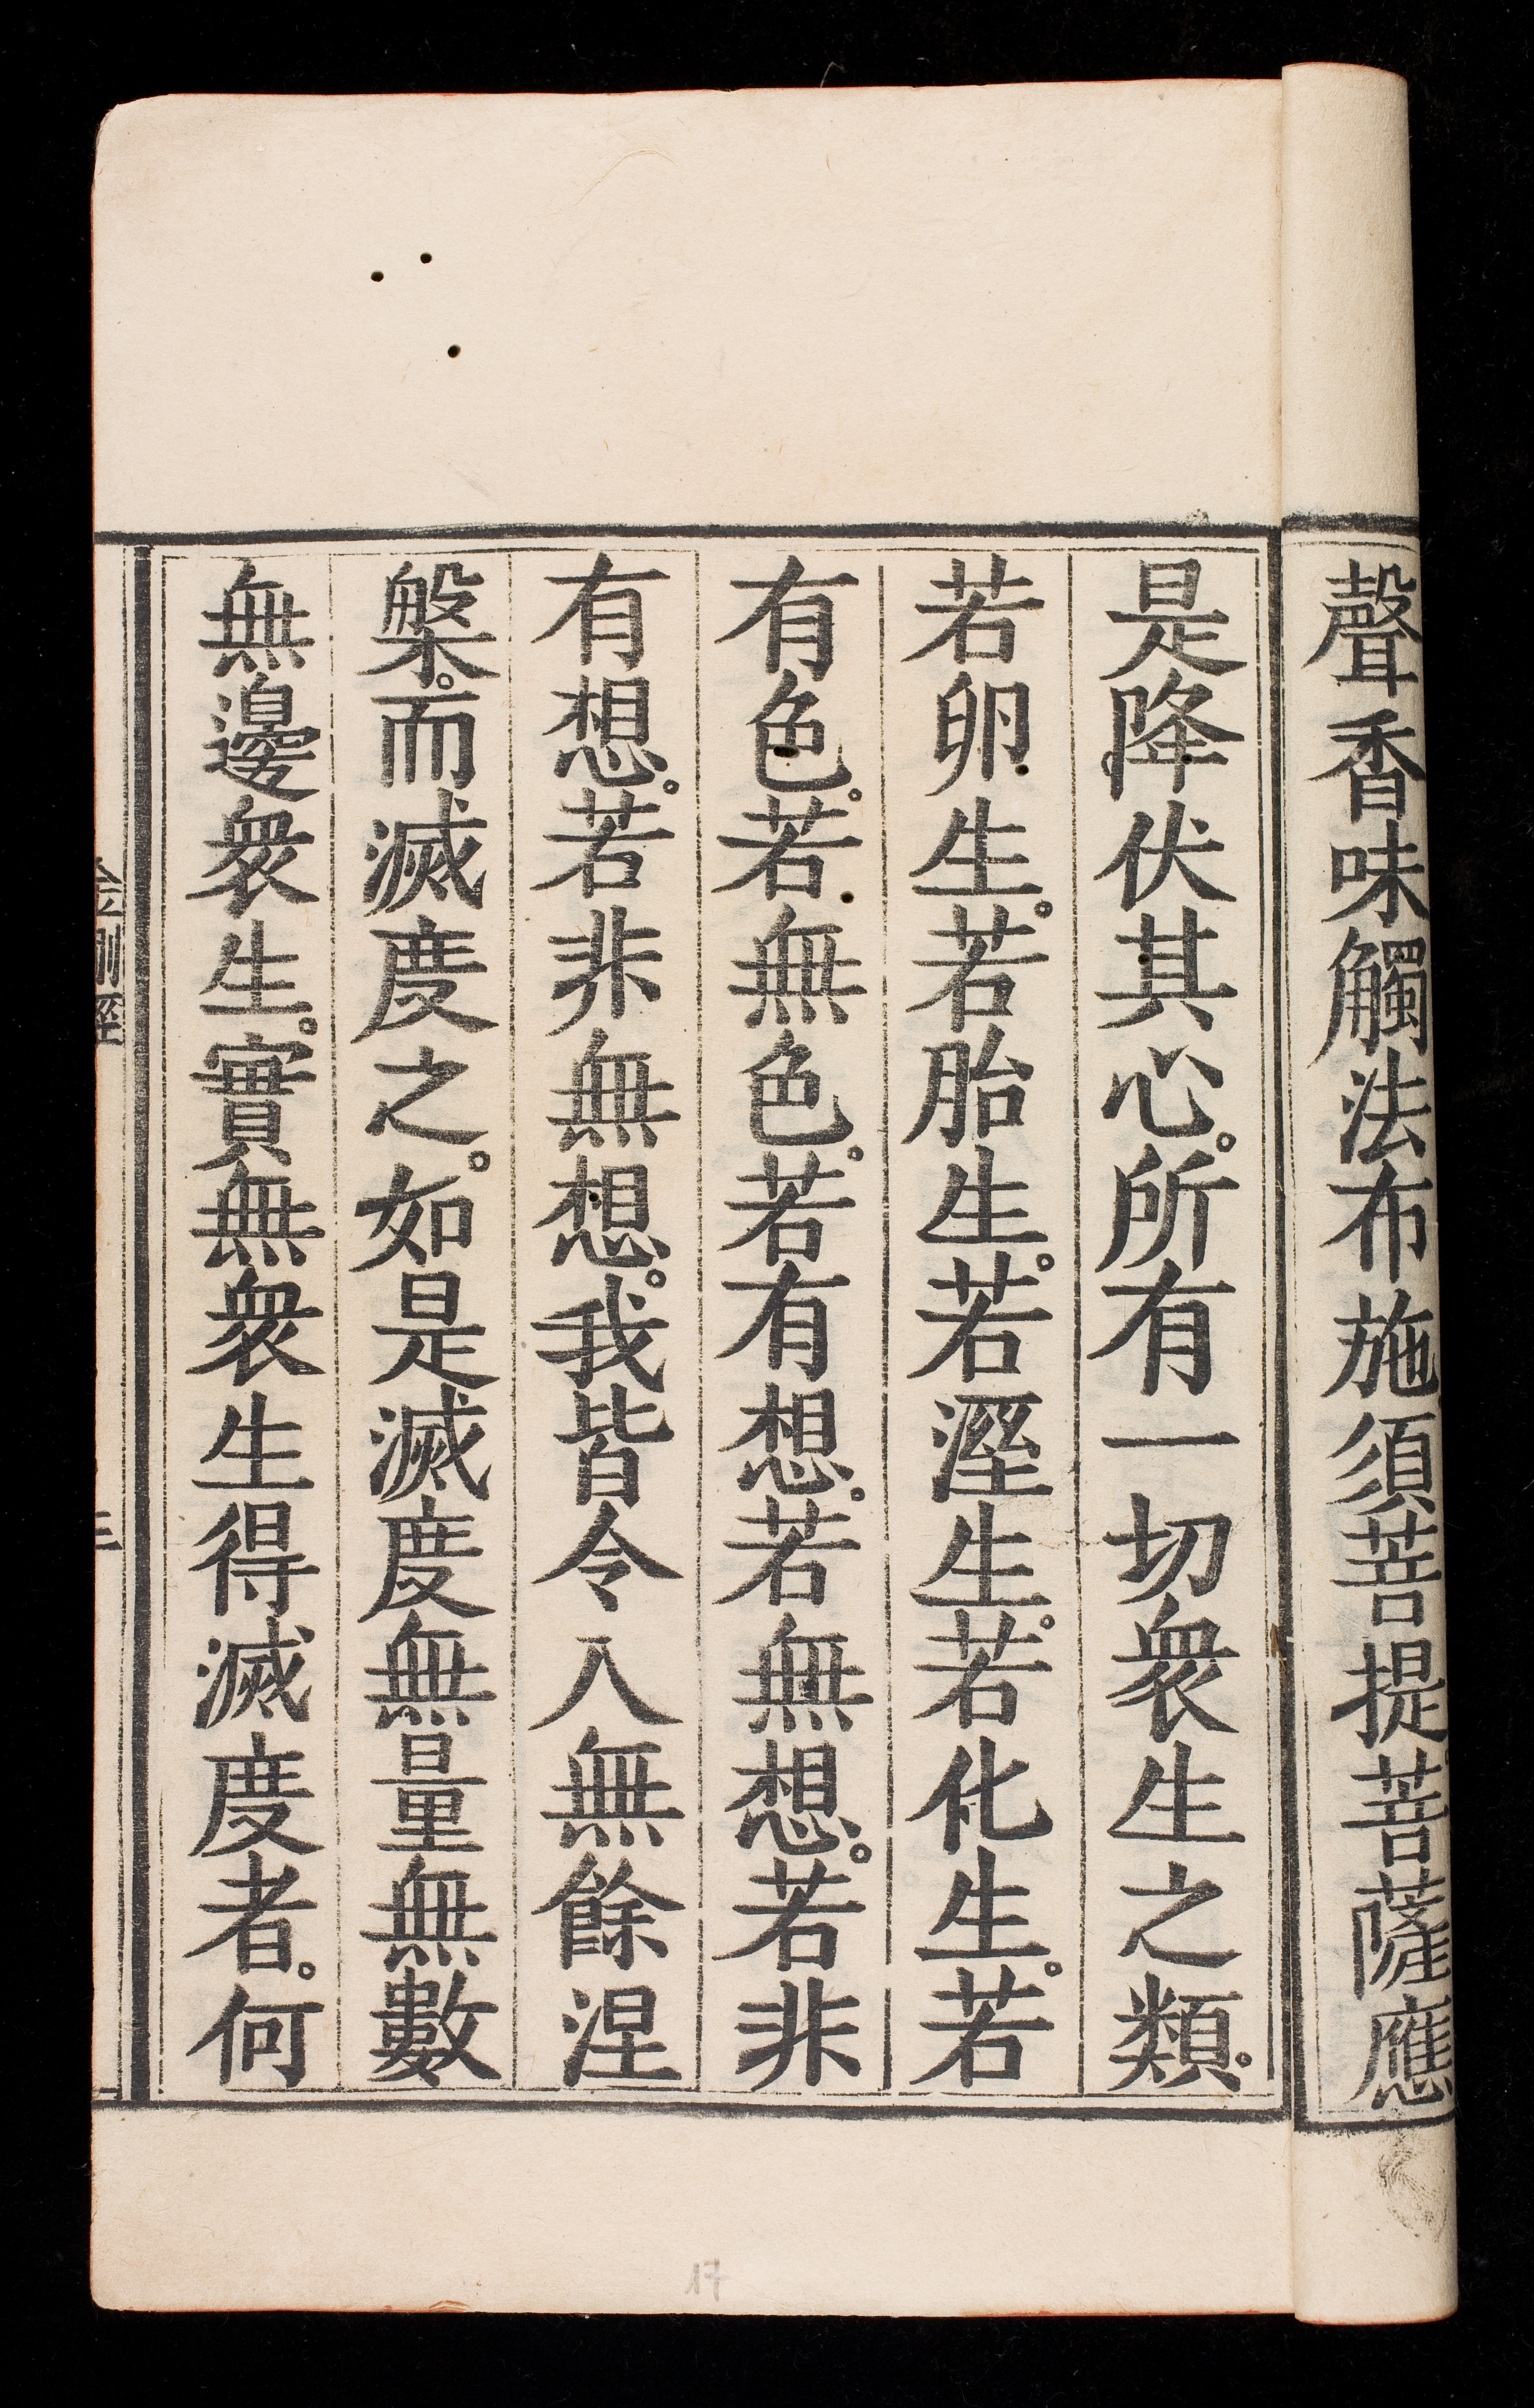 聲香味觸法布施須菩提菩薩應
是降伏其心。所有一切衆生之類。
若卵生。若胎生。若溼生。若化生。若
有色。若無色。若有想。若無想。若非
有想。若非無想。我皆令入無餘涅
槃。而滅度之。如是滅度無量無數
無邊衆生。實無衆生得滅度者。何
17